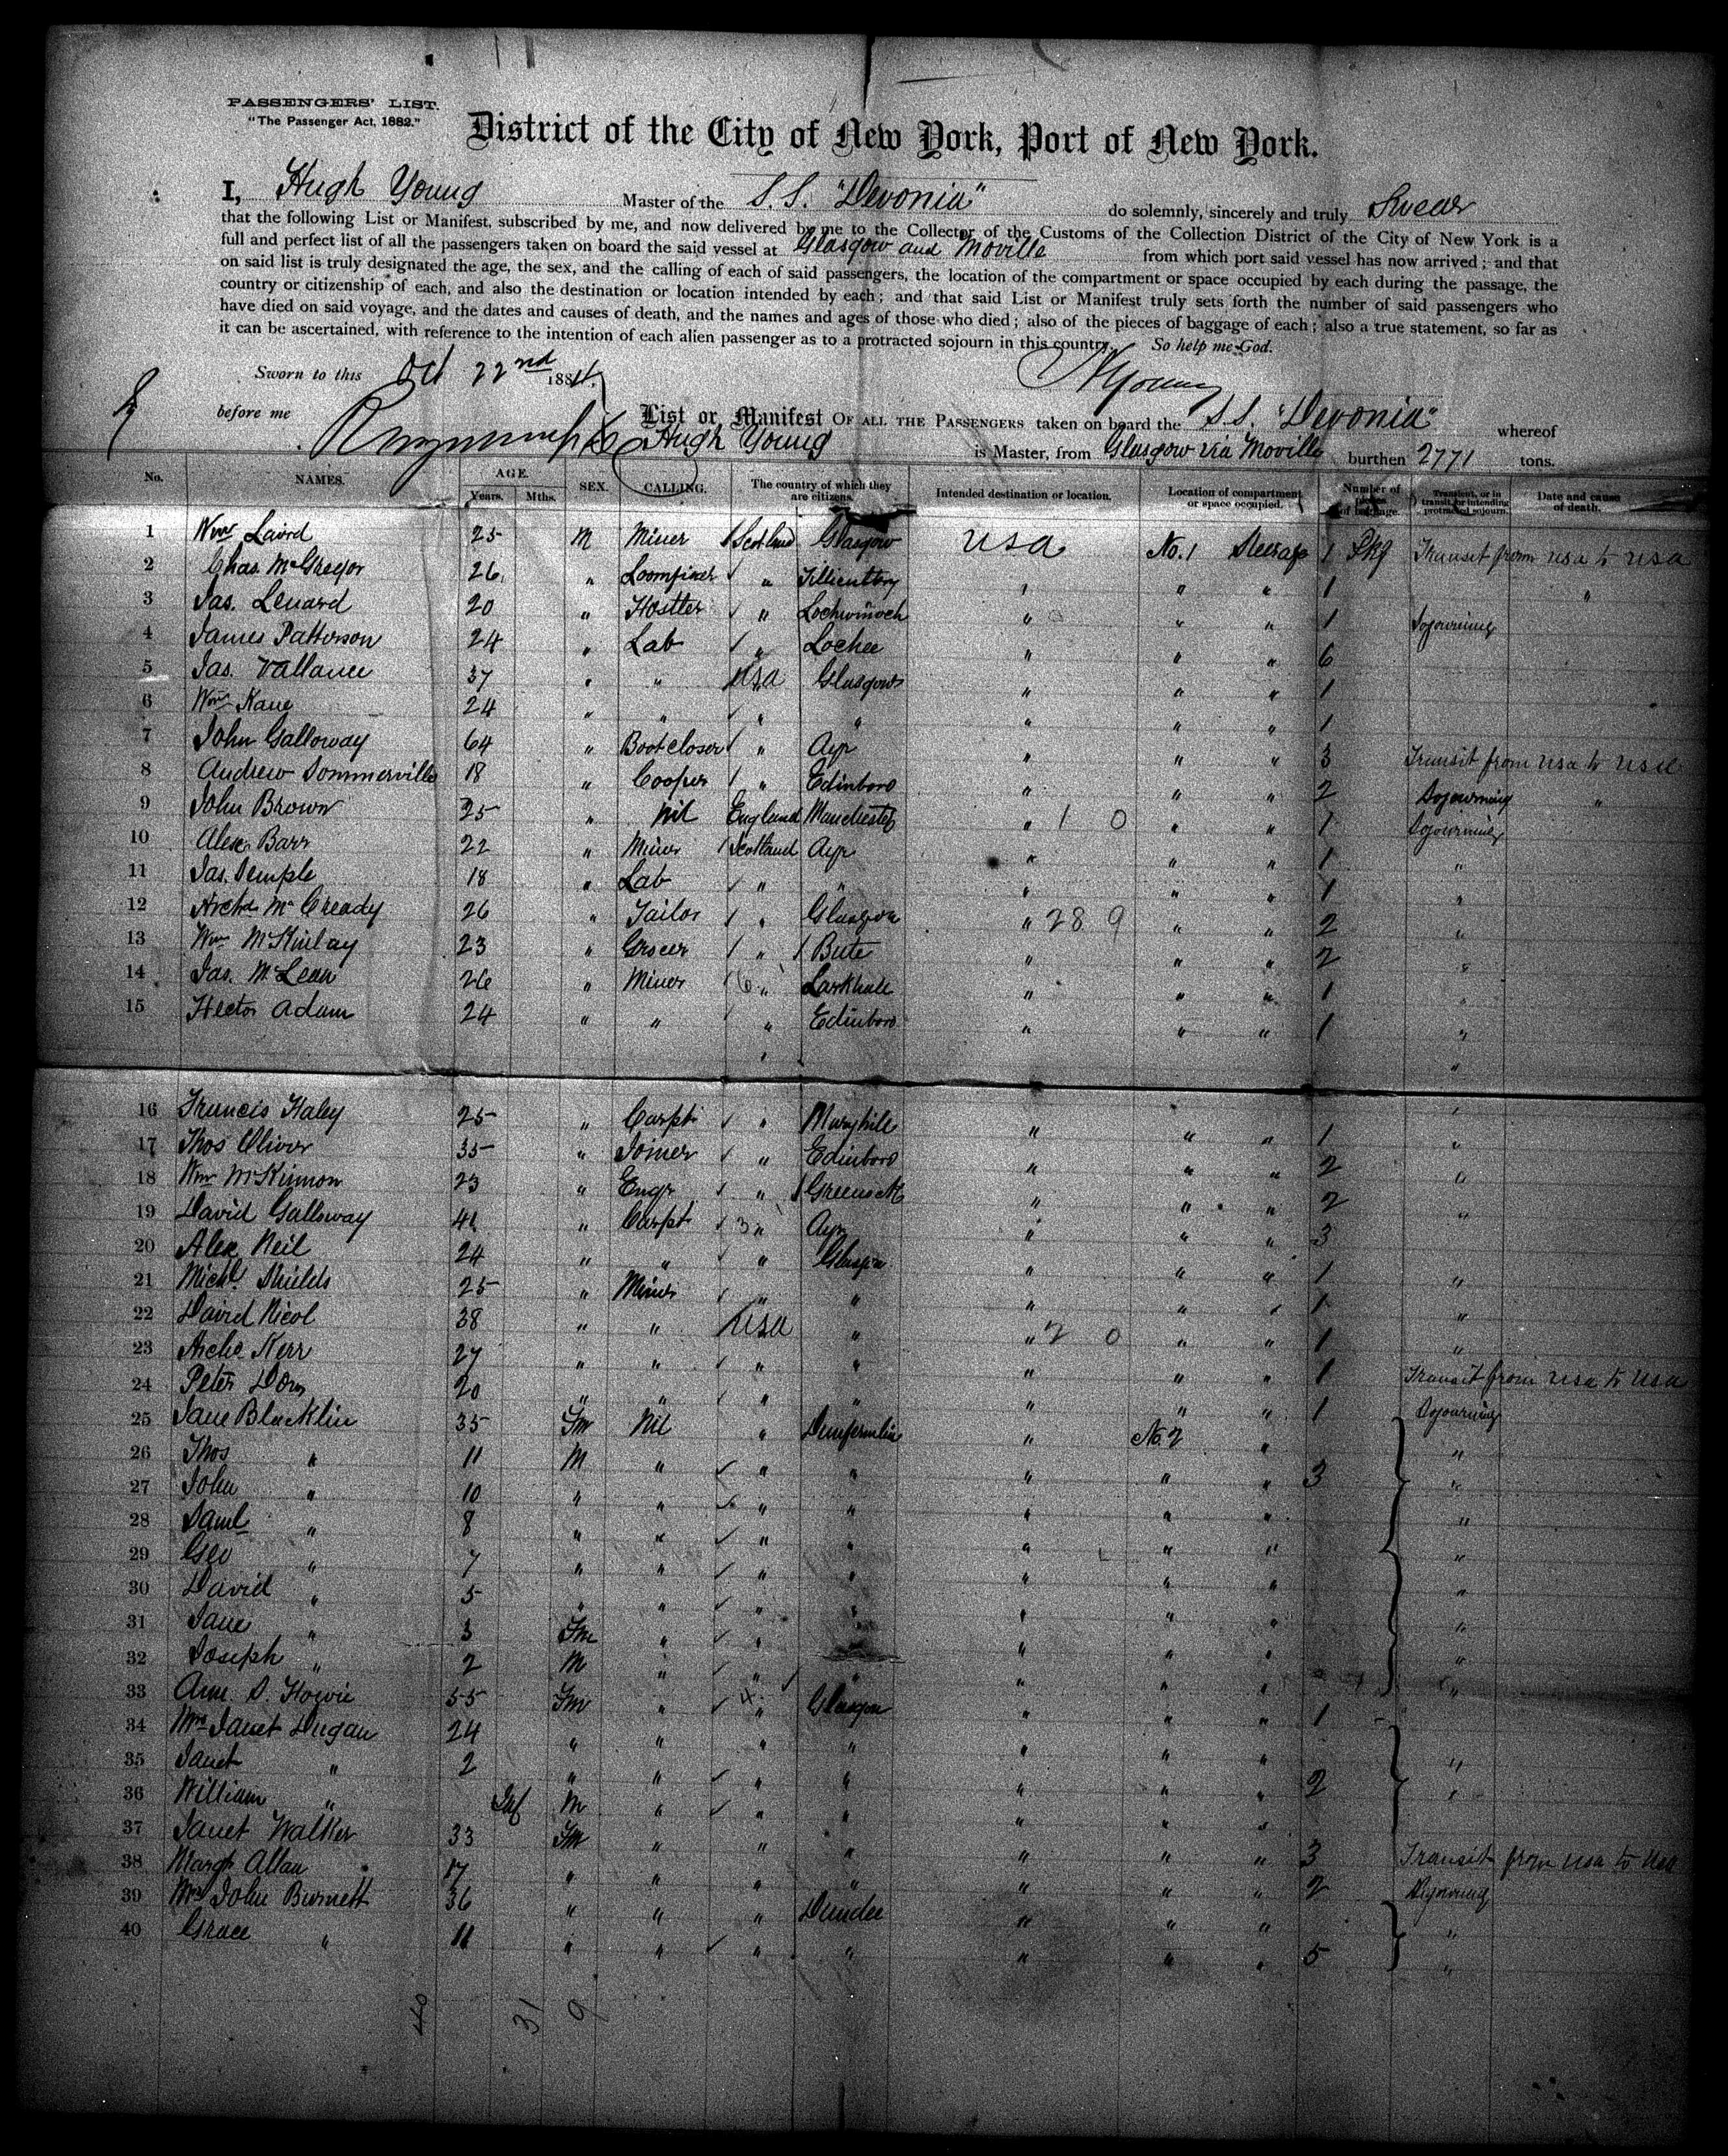 PASSENGERS' LIST.
"The Passenger Act, 1882."
District of the City of New York, Port of New York.
I, Hugh Young Master of the S.S. "Devonia" do solemnly, sincerely and truly Swear
that the following List or Manifest, subscribed by me, and now delivered by me to the Collector of the Customs of the Collection District of the City of New York is a
full and perfect list of all the passengers taken on board the said vessel at Glasgow and Moville from which port said vessel has now arrived; and that
on said list is truly designated the age, the sex, and the calling of each of said passengers, the location of the compartment or space occupied by each during the passage, the
country or citizenship of each, and also the destination or location intended by each; and that said List or Manifest truly sets forth the number of said passengers who
have died on said voyage, and the dates and causes of death, and the names and ages of those who died; also of the pieces of baggage of each; also a true statement, so far as
it can be ascertained, with reference to the intention of each alien passenger as to a protracted sojourn in this country. So help me God.
Sworn to this Oct 22nd 1884. HYoung
before me
List or Manifest OF ALL THE PASSENGERS taken on board the S.S. "Devonia" whereof
Hugh Young is Master, from Glasgow via Moville burthen 2771 tons.
No. NAMES. AGE. Years. Mths. SEX. CALLING. The country of which they are citizens. Intended destination or location. Location of compartment or space occupied. Number of pieces of baggage. Transient, or in transit, or intending protracted sojourn. Date and cause of death.
1 Wm Laird 25 M Miner Scotland Glasgow USA No. 1 Steerage 1 Pkg Transit from USA to USA
2 Chas. McGregor 26 " " " " " 1 "
3 Jas. Lenard 20 " Hostler " Lochwinoch " " " 1 Sojourning
4 James Patterson 24 " Lab " Lochee " " " 6
5 Jas. Vallance 37 " " USA Glasgow " " " 1
6 Wm Kane 24 " " " " " " " 1
7 John Galloway 64 " Bootcloser " Ayr " " " 3 Transit from USA to USA
8 Andrew Sommerville 18 " Cooper " Edinboro " " " 2 Sojourning "
9 John Brown 25 " Nil England Manchester " 1 0 " " 1 Sojourning
10 Alex. Barr 22 " Miner Scotland Ayr " " " 1 "
11 Jas. Semple 18 " Lab " " " " " 1 "
12 Archd McCready 26 " Tailor " Glasgow " 28 9 " " 2 "
13 Wm McKinlay 23 " Grocer " Bute " " " 2 "
14 Jas. McLean 26 " Miner 6 " Larkhall " " " 1 "
15 Hector Adam 24 " " " Edinboro " " " 1 "
16 Francis Haley 25 " Carpt " Maryhill " " " 1 "
17 Thos Oliver 35 " Joiner " Edinboro " " " 2 "
18 Wm McKinnon 23 " Engr " Greenock " " " 2 "
19 David Galloway 41 " Carpt 3 " Ayr " " " 3
20 Alex Neil 24 " " " Glasgow " " " 1 "
21 Michl Shields 25 " Miner " " " " " 1 "
22 David Nicol 38 " " USA " " 2 0 " " 1 "
23 Archd Kerr 27 " " " " " " " 1 Transit from USA to USA
24 Peter 20 " " " " " " " 1 Sojourning
25 Jane Blacklin 35 Fm Nil " Dunfermlin " No. 2 " "
26 Thos " 11 M " " " " " " 3 "
27 John " 10 " " " " " " " "
28 Saml " 8 " " " " " " " "
29 Geo " 7 " " " " " " " "
30 David " 5 " " " " " " " "
31 Jane " 3 Fm " " " " " " "
32 Joseph " 2 M " " " " " " "
33 Ann. S. Howie 55 Fm " 4 " Glasgow " " " 1
34 Mrs Janet Dugan 24 " " " " " " " "
35 Janet " 2 " " " " " " " 2 "
36 William " Inf M " " " " " "
37 Janet Walker 33 Fm " " " " " " 3 Transit from USA to USA
38 Margt Allan 17 " " " " " " " 2 Sojourning
39 Mrs John Burnett 36 " " " Dundee " " " "
40 Grace " 11 " " " " " " " 5 "
40 31 9